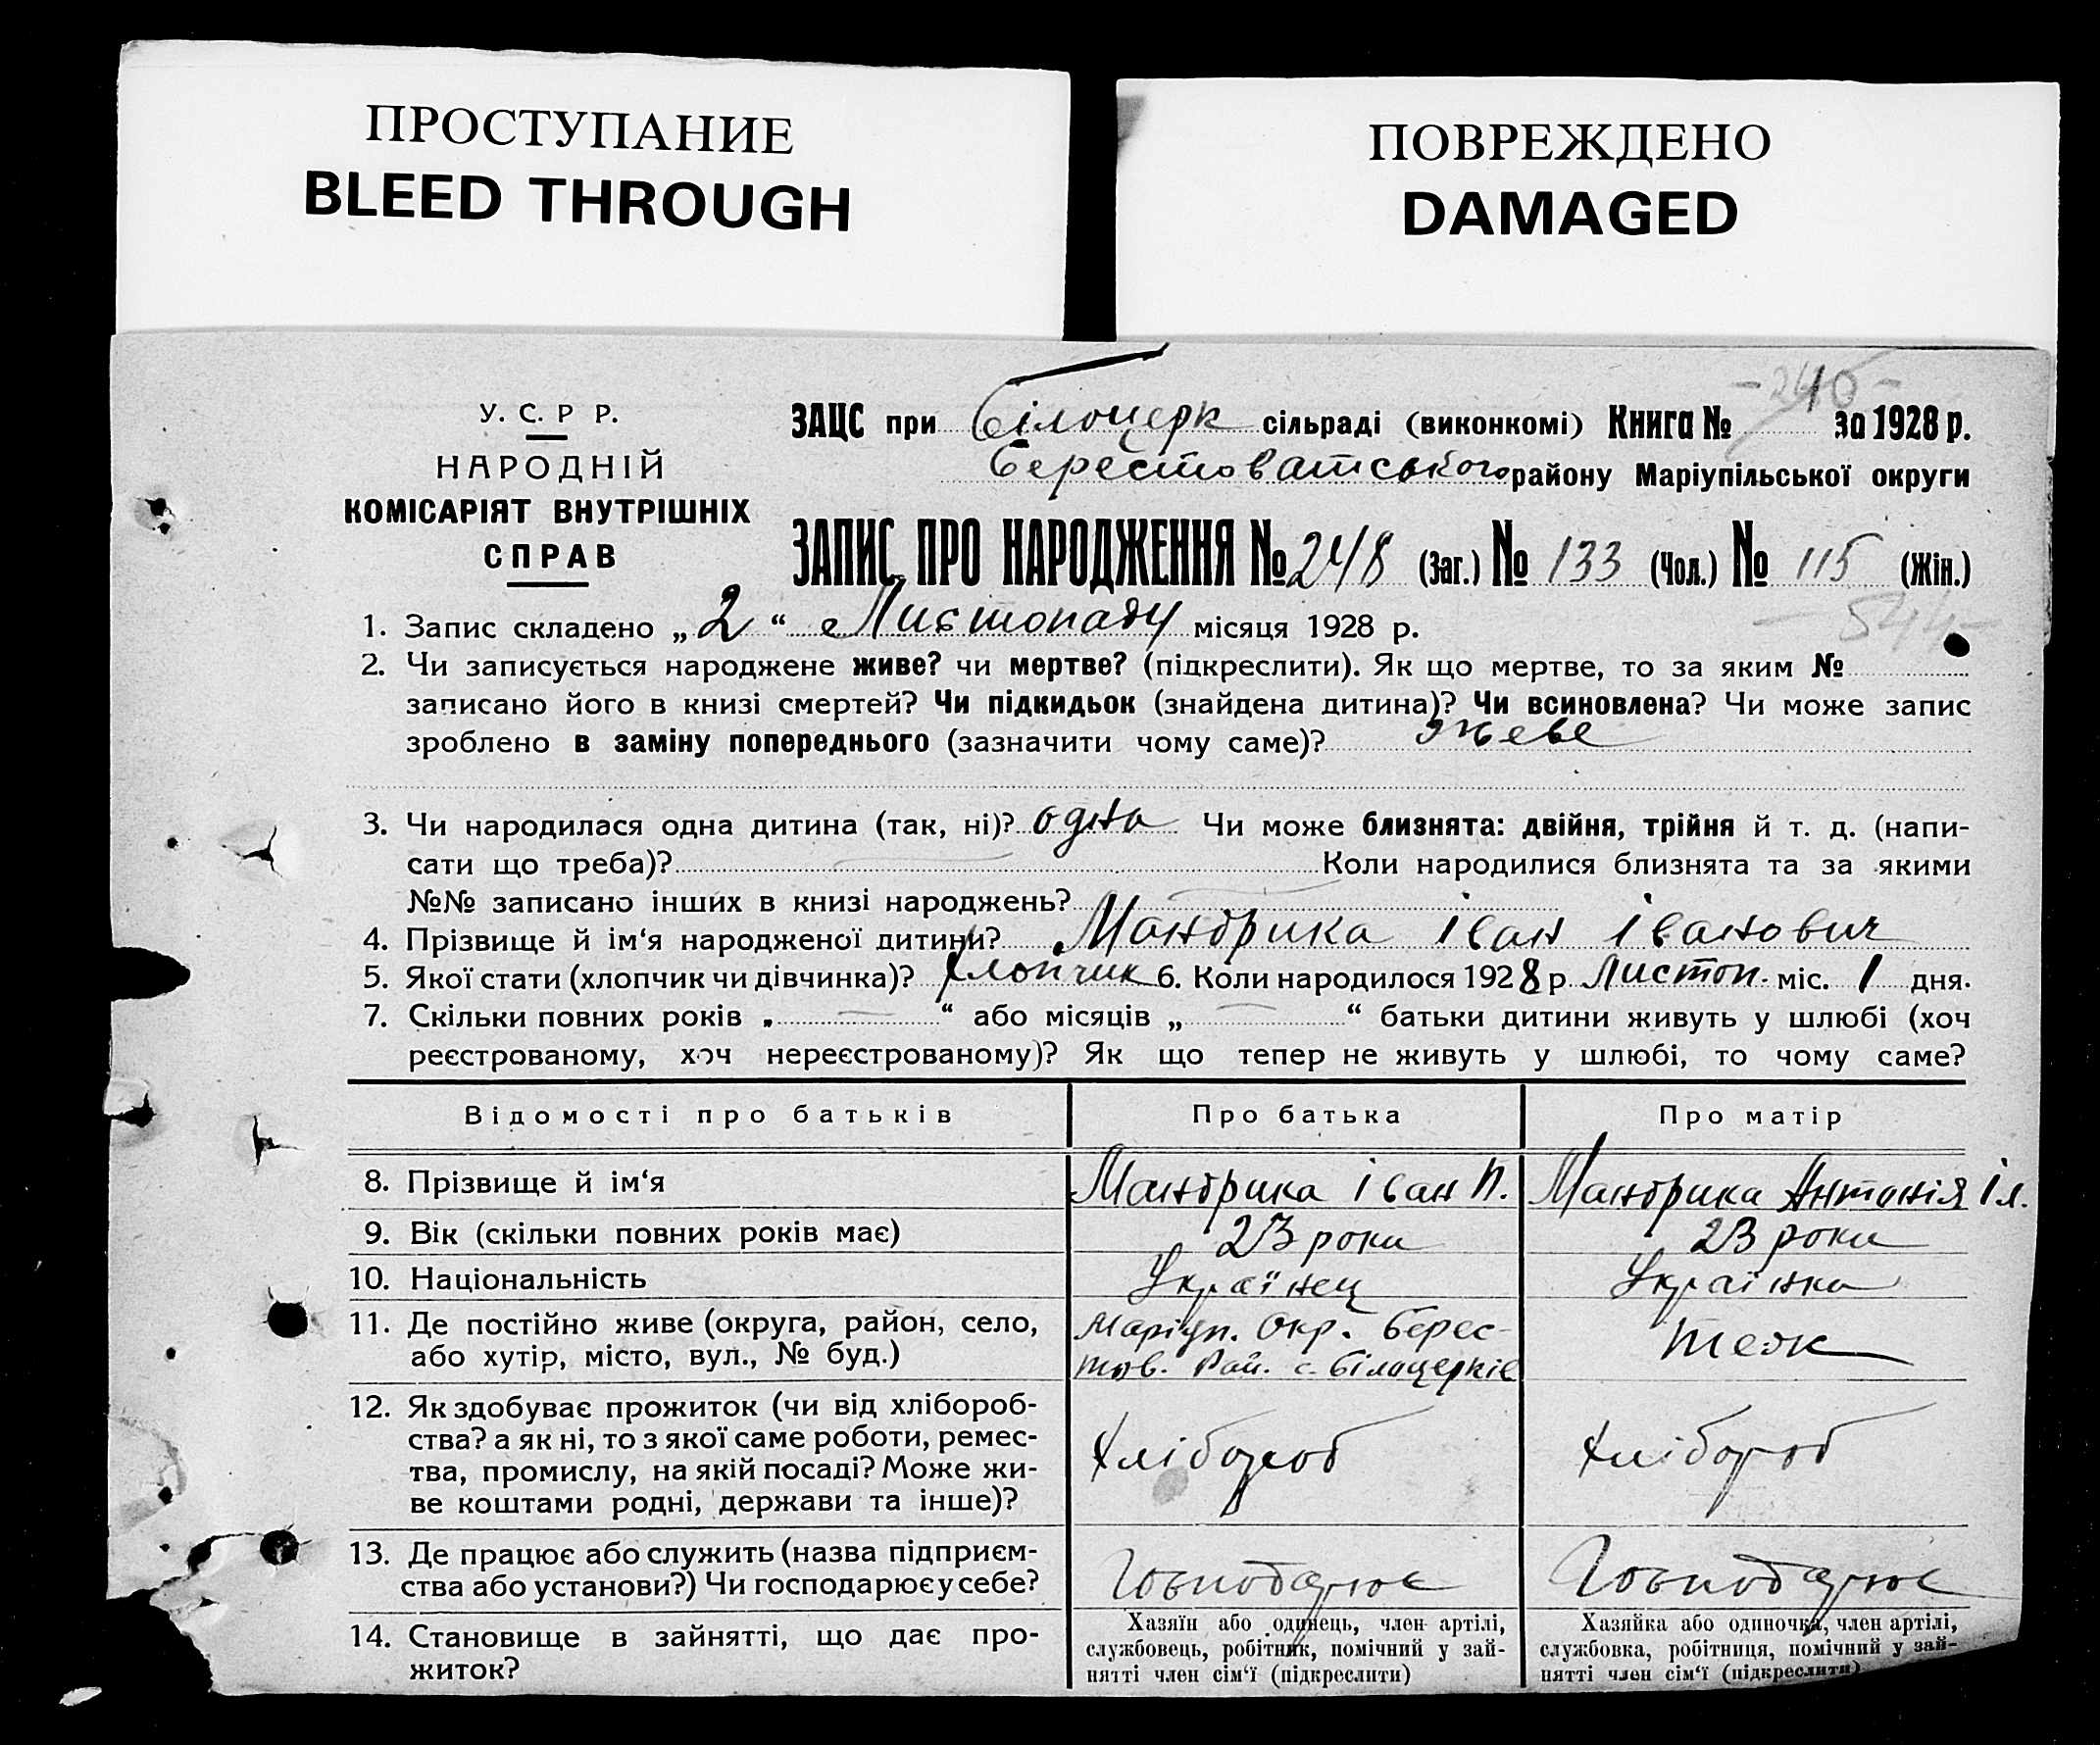 ПРОСТУПАНИЕ
BLEED THROUGH
ПОВРЕЖДЕНО
DAMAGED
У. С. Р Р.
НАРОДНІЙ
КОМІСАРІЯТ ВНУТРІШНІХ
СПРАВ
ЗАЦС при Білоцерк сільраді (виконкомі) Книга № за 1928 р.
Берестоватського району Маріупільської округи
ЗАПИС ПРО НАРОДЖЕННЯ № 248 (Заг.) № 133 (Чол.) № 115 (Жін.)
- 544 -
1. Запис складено „ 2 “ Листопаду місяця 1928 р.
2. Чи записується народжене живе? чи мертве? (підкреслити). Як що мертве, то за яким №
записано його в книзі смертей? Чи підкидьок (знайдена дитина)? Чи всиновлена? Чи може запис
зроблено в заміну попереднього (зазначити чому саме)? живе
3. Чи народилася одна дитина (так, ні)? одна Чи може близнята: двійня, трійня й т. д. (напи-
сати що треба)? Коли народилися близнята та за якими
№№ записано інших в книзі народжень?
4. Прізвище й ім‘я народженої дитини? Мандрика Іван Іванович
5. Якої стати (хлопчик чи дівчинка)? Хлопчик 6. Коли народилося 1928 р. Листоп. міс. 1 дня.
7. Скільки повних років „ — “ або місяців „ — “ батьки дитини живуть у шлюбі (хоч
реєстрованому, хоч нереєстрованому)? Як що тепер не живуть у шлюбі, то чому саме?
Відомості про батьків Про батька Про матір
8. Прізвище й ім‘я Мандрика Іван П. Мандрика Антонія Іл.
9. Вік (скільки повних років має) 23 роки 23 роки
10. Національність Українец Українка
11. Де постійно живе (округа, район, село,
або хутір, місто, вул., № буд.)
Маріуп. Окр. Берес-
тов. Рай. с. Білоцерків
теж
12. Як здобуває прожиток (чи від хлібороб-
ства? а як ні, то з якої саме роботи, ремес-
тва, промислу, на якій посаді? Може жи-
ве коштами родні, держави та інше)?
Хлібороб
Хлібороб
13. Де працює або служить (назва підприєм-
ства або установи?) Чи господарює у себе?
Господарює
Господарює
14. Становище в зайнятті, що дає про-
житок?
Хазяїн або одинець, член артілі,
службовець, робітник, помічний у зай-
нятті член сім‘ї (підкреслити)
Хазяйка або одиночка, член артілі,
службовка, робітниця, помічний у зай-
нятті член сім‘ї (підкреслити)